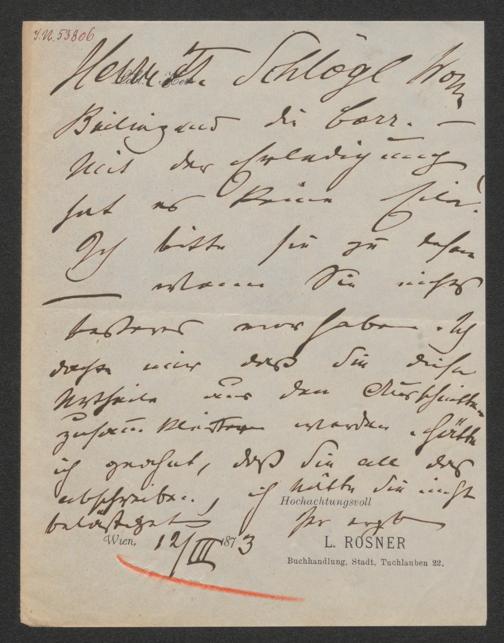 I.N. 53806
Herrn F. Schlögl Wien
Beiliegend die Corr. —
Mit der Erledigung
hat es keine Eile.
Ich bitte sie zu lesen
— wenn Sie nichts
besseres vorhaben. Ich
dachte mir daß Sie diese
Urtheile aus den Ausschnitten
zusam̄kleistern werden. Hätte
ich geahnt, daß Sie all das
abschreiben, ich hätte Sie nicht
belästigt
Hochachtungsvoll
Ihr ergb
Wien, 12/III 1873
L. ROSNER
Buchhandlung, Stadt, Tuchlauben 22.